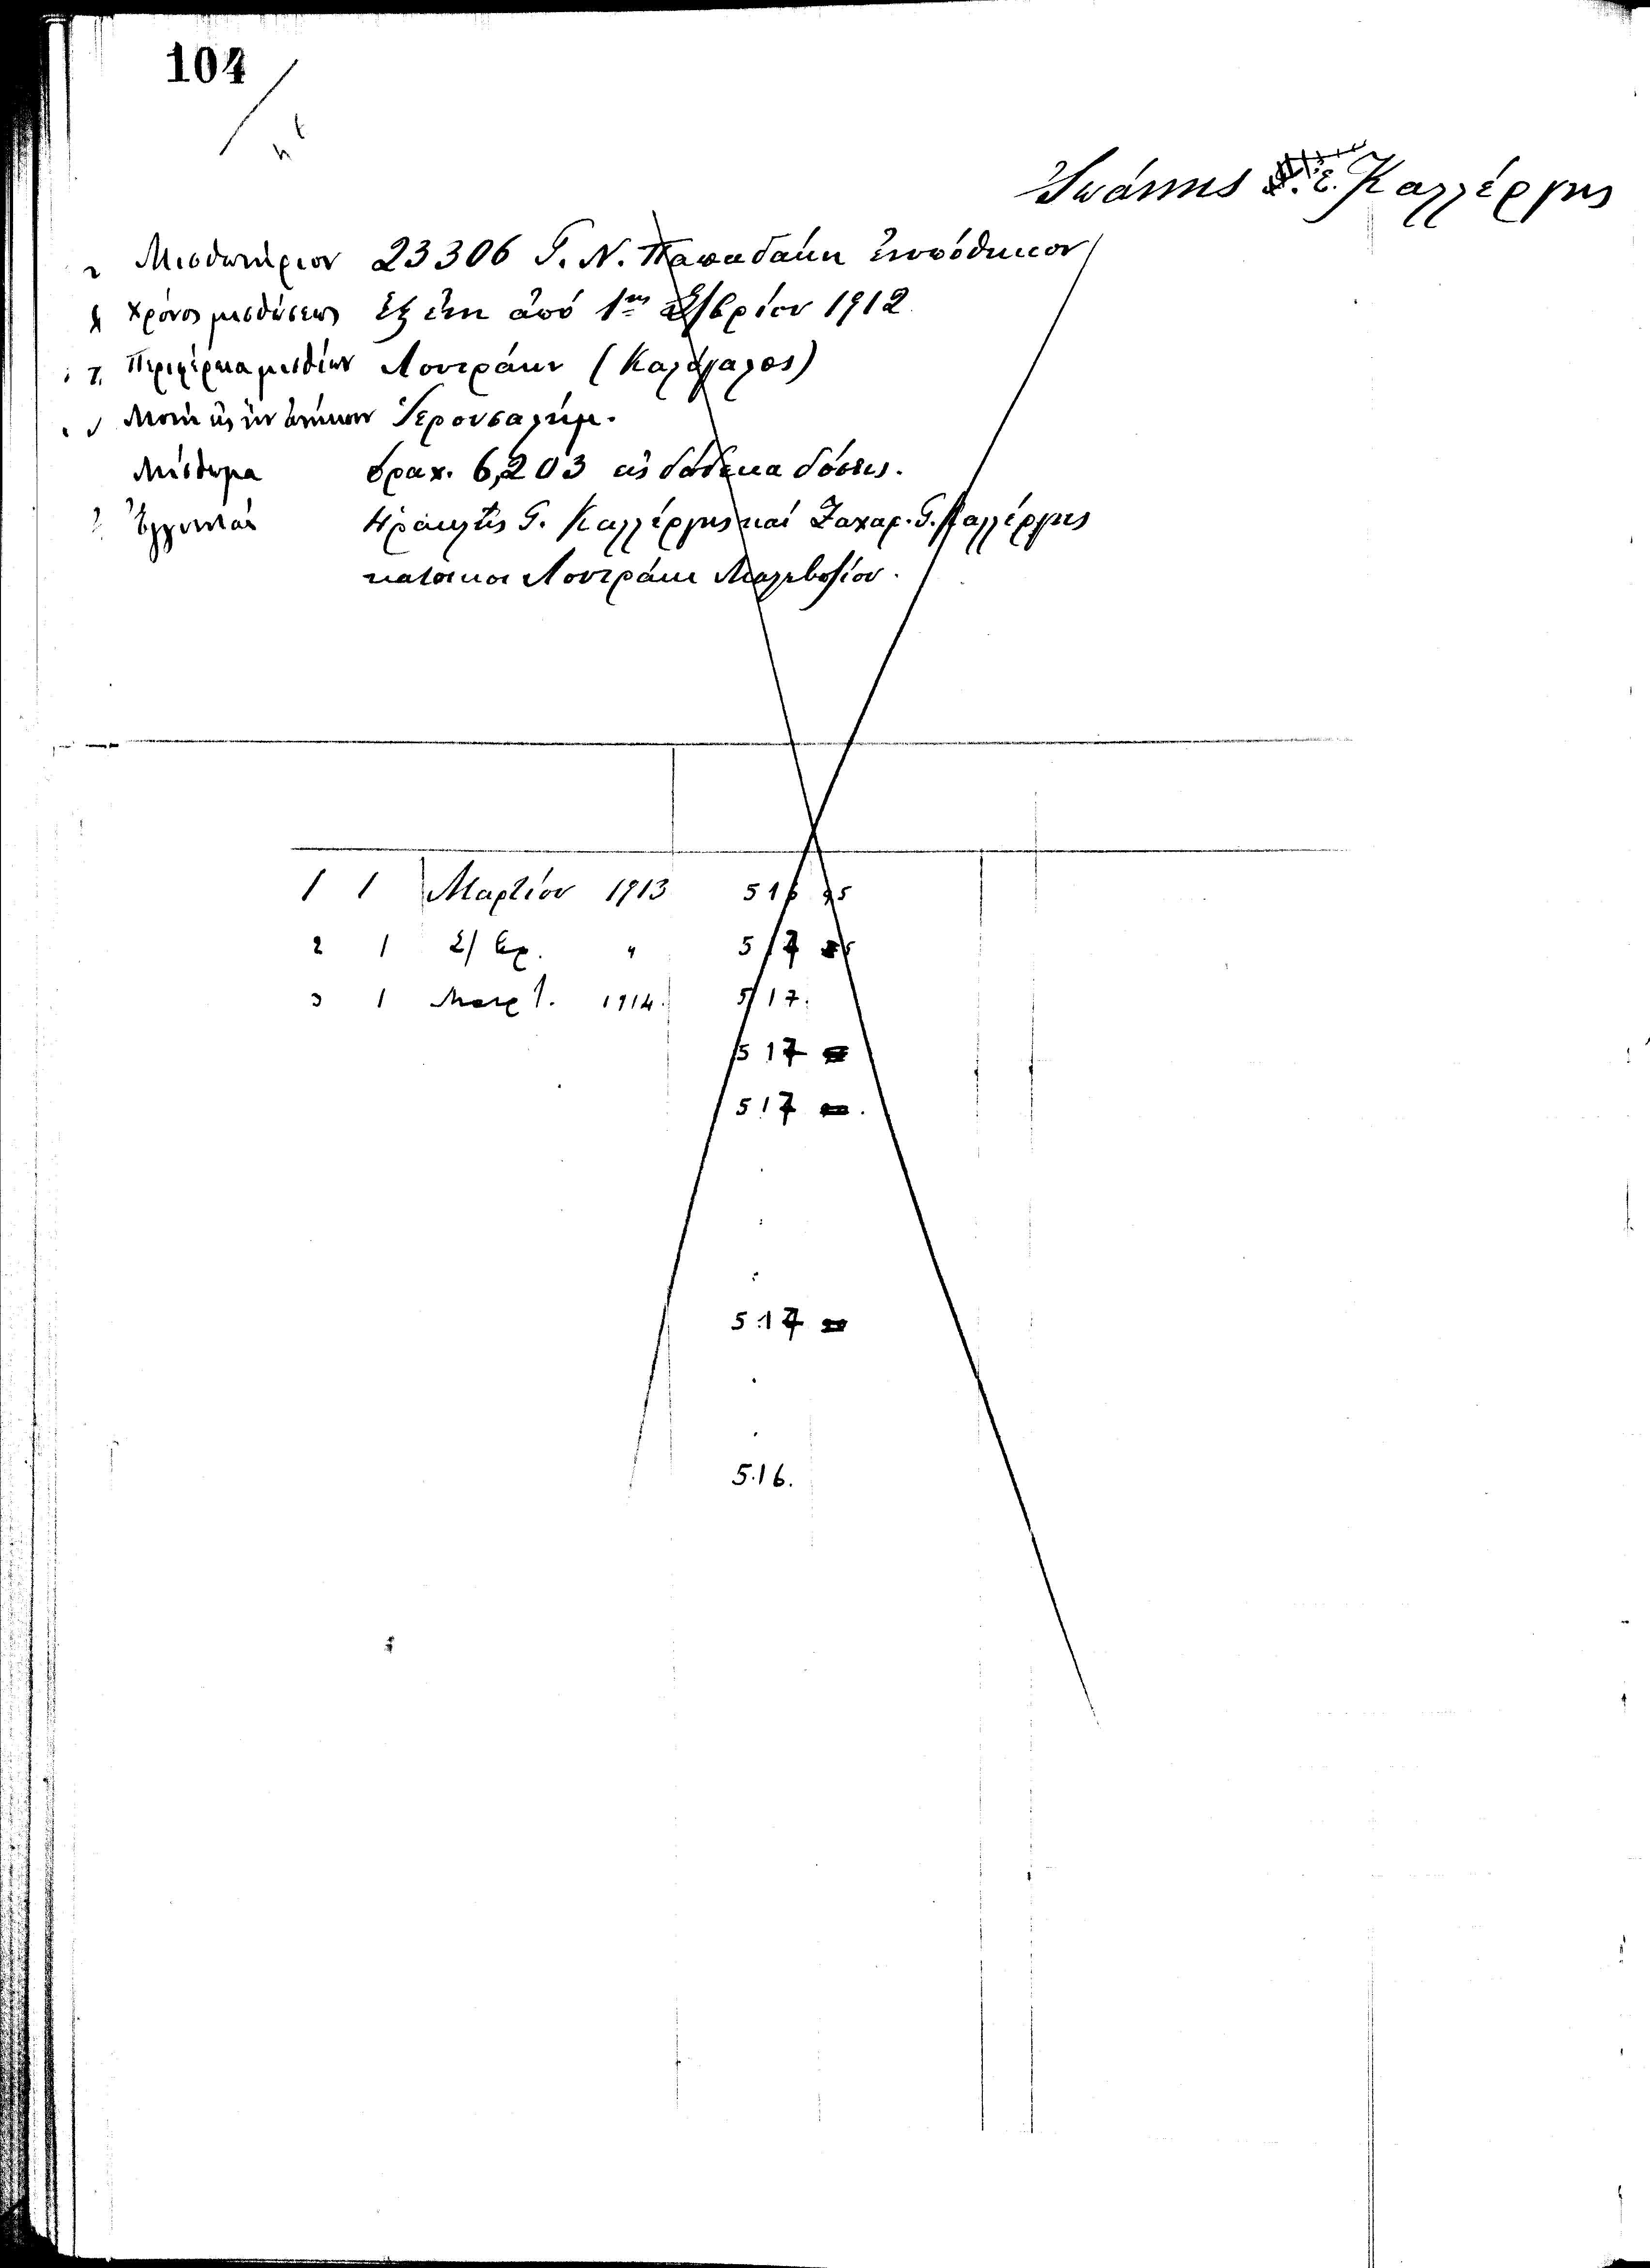 104
Ἰωάννης Ἐ. Καλλέργης
Μισθωτήριον 23306 Γ. Ν. Παπαδάκη ἐνυπόθηκον
Χρόνος μισθώσεως ἓξ ἔτη ἀπό 1ης Σ/βρίου 1912
Περιφέρεια μισθίων Λουτράκι (Καλόγαλος)
Μονή εἰς ἣν ἀνήκουν Ἱερουσαλήμ.
Μίσθωμα δραχ. 6,203 εἰς δώδεκα δόσεις.
Ἐγγυηταί Ἡρακλῆς Γ. Καλλέργης καί Ζαχαρ. Γ. Καλλέργης
κάτοικοι Λουτράκι Μαλεβυζίου.
1 1 Μαρτίου 1913 516 95
2 1 Σ/βρ. " 517
3 1 Μαρτ. 1914. 517.
517
517
517
516.